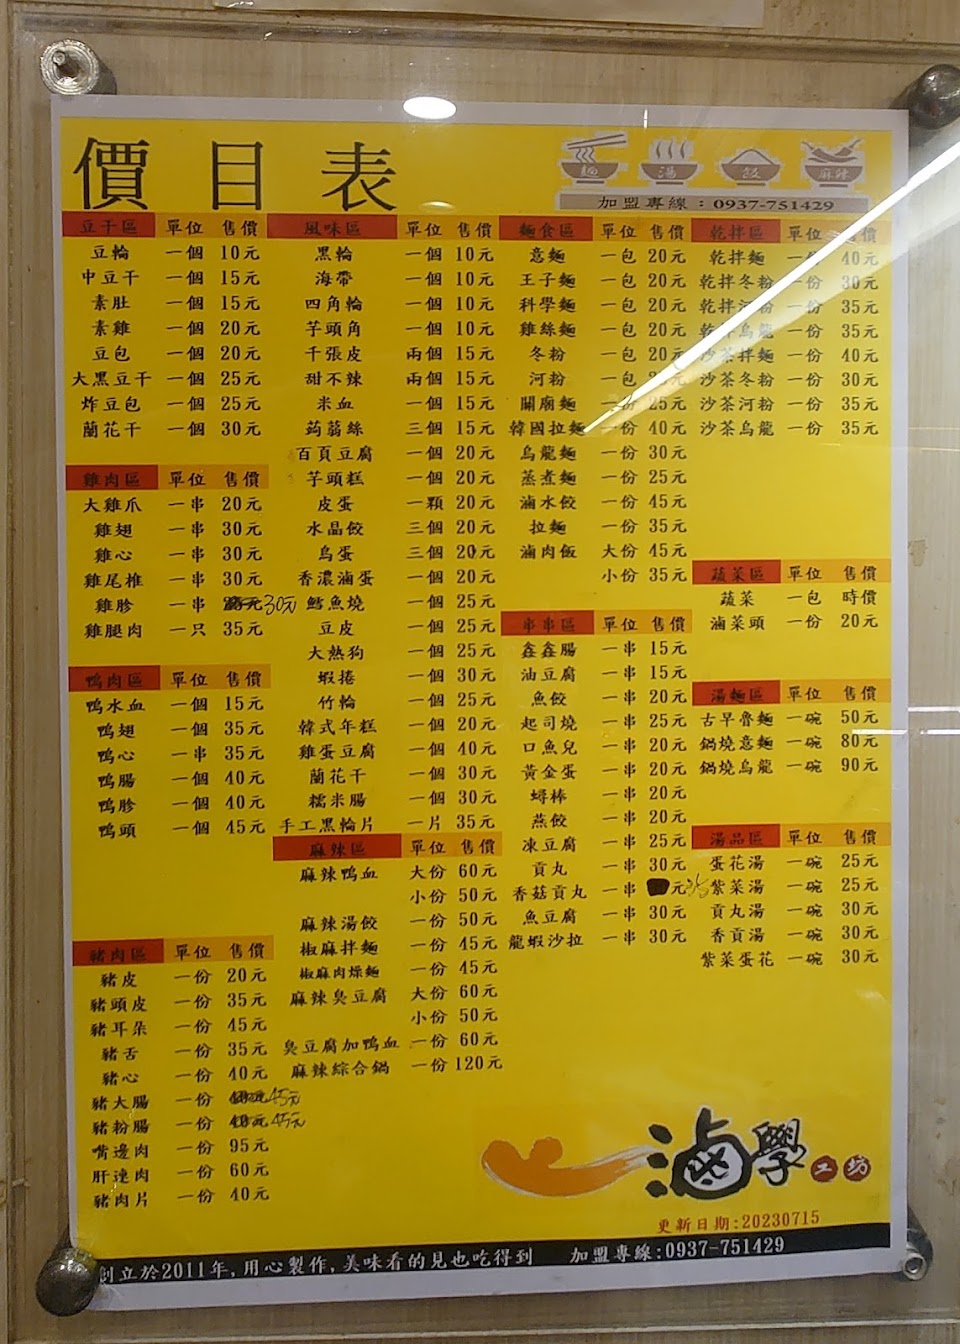 價目表
麵 湯 飯 麻辣
加盟專線：0937-751429
豆干區 單位 售價
豆輪 一個 10元
中豆干 一個 15元
素肚 一個 15元
素雞 一個 20元
豆包 一個 20元
大黑豆干 一個 25元
炸豆包 一個 25元
蘭花干 一個 30元
雞肉區 單位 售價
大雞爪 一串 20元
雞翅 一串 30元
雞心 一串 30元
雞尾椎 一串 30元
雞胗 一串 30元
雞腿肉 一只 35元
鴨肉區 單位 售價
鴨水血 一個 15元
鴨翅 一個 35元
鴨心 一串 35元
鴨腸 一個 40元
鴨胗 一個 40元
鴨頭 一個 45元
豬肉區 單位 售價
豬皮 一份 20元
豬頭皮 一份 35元
豬耳朵 一份 45元
豬舌 一份 35元
豬心 一份 40元
豬大腸 一份 45元
豬粉腸 一份 45元
嘴邊肉 一份 95元
肝連肉 一份 60元
豬肉片 一份 40元
風味區 單位 售價
黑輪 一個 10元
海帶 一個 10元
四角輪 一個 10元
芋頭角 一個 10元
千張皮 兩個 15元
甜不辣 兩個 15元
米血 一個 15元
蒟蒻絲 三個 15元
百頁豆腐 一個 20元
芋頭糕 一個 20元
皮蛋 一顆 20元
水晶餃 三個 20元
鳥蛋 三個 20元
香濃滷蛋 一個 20元
鱈魚燒 一個 25元
豆皮 一個 25元
大熱狗 一個 25元
蝦捲 一個 30元
竹輪 一個 25元
韓式年糕 一個 20元
雞蛋豆腐 一個 40元
蘭花干 一個 30元
糯米腸 一個 30元
手工黑輪片 一片 35元
麻辣區 單位 售價
麻辣鴨血 大份 60元
小份 50元
麻辣湯餃 一份 50元
椒麻拌麵 一份 45元
椒麻肉燥麵 一份 45元
麻辣臭豆腐 大份 60元
小份 50元
臭豆腐加鴨血 一份 60元
麻辣綜合鍋 一份 120元
麵食區 單位 售價
意麵 一包 20元
王子麵 一包 20元
科學麵 一包 20元
雞絲麵 一包 20元
冬粉 一包 20元
河粉 一包 元
關廟麵 份 25元
韓國拉麵 一份 40元
烏龍麵 一份 30元
蒸煮麵 一份 25元
滷水餃 一份 45元
拉麵 一份 35元
滷肉飯 大份 45元
小份 35元
串串區 單位 售價
鑫鑫腸 一串 15元
油豆腐 一串 15元
魚餃 一串 20元
起司燒 一串 25元
口魚兒 一串 20元
黃金蛋 一串 20元
蟳棒 一串 20元
燕餃 一串 20元
凍豆腐 一串 25元
貢丸 一串 30元
香菇貢丸 一串 元 35
魚豆腐 一串 30元
龍蝦沙拉 一串 30元
乾拌區 單位 售價
乾拌麵 一份 40元
乾拌冬粉 一份 30元
乾拌河粉 一份 35元
乾拌烏龍 一份 35元
沙茶拌麵 一份 40元
沙茶冬粉 一份 30元
沙茶河粉 一份 35元
沙茶烏龍 一份 35元
蔬菜區 單位 售價
蔬菜 一包 時價
滷菜頭 一份 20元
湯麵區 單位 售價
古早魯麵 一碗 50元
鍋燒意麵 一碗 80元
鍋燒烏龍 一碗 90元
湯品區 單位 售價
蛋花湯 一碗 25元
紫菜湯 一碗 25元
貢丸湯 一碗 30元
香貢湯 一碗 30元
紫菜蛋花 一碗 30元
滷學工坊
更新日期:20230715
創立於2011年,用心製作,美味看的見也吃得到 加盟專線:0937-751429